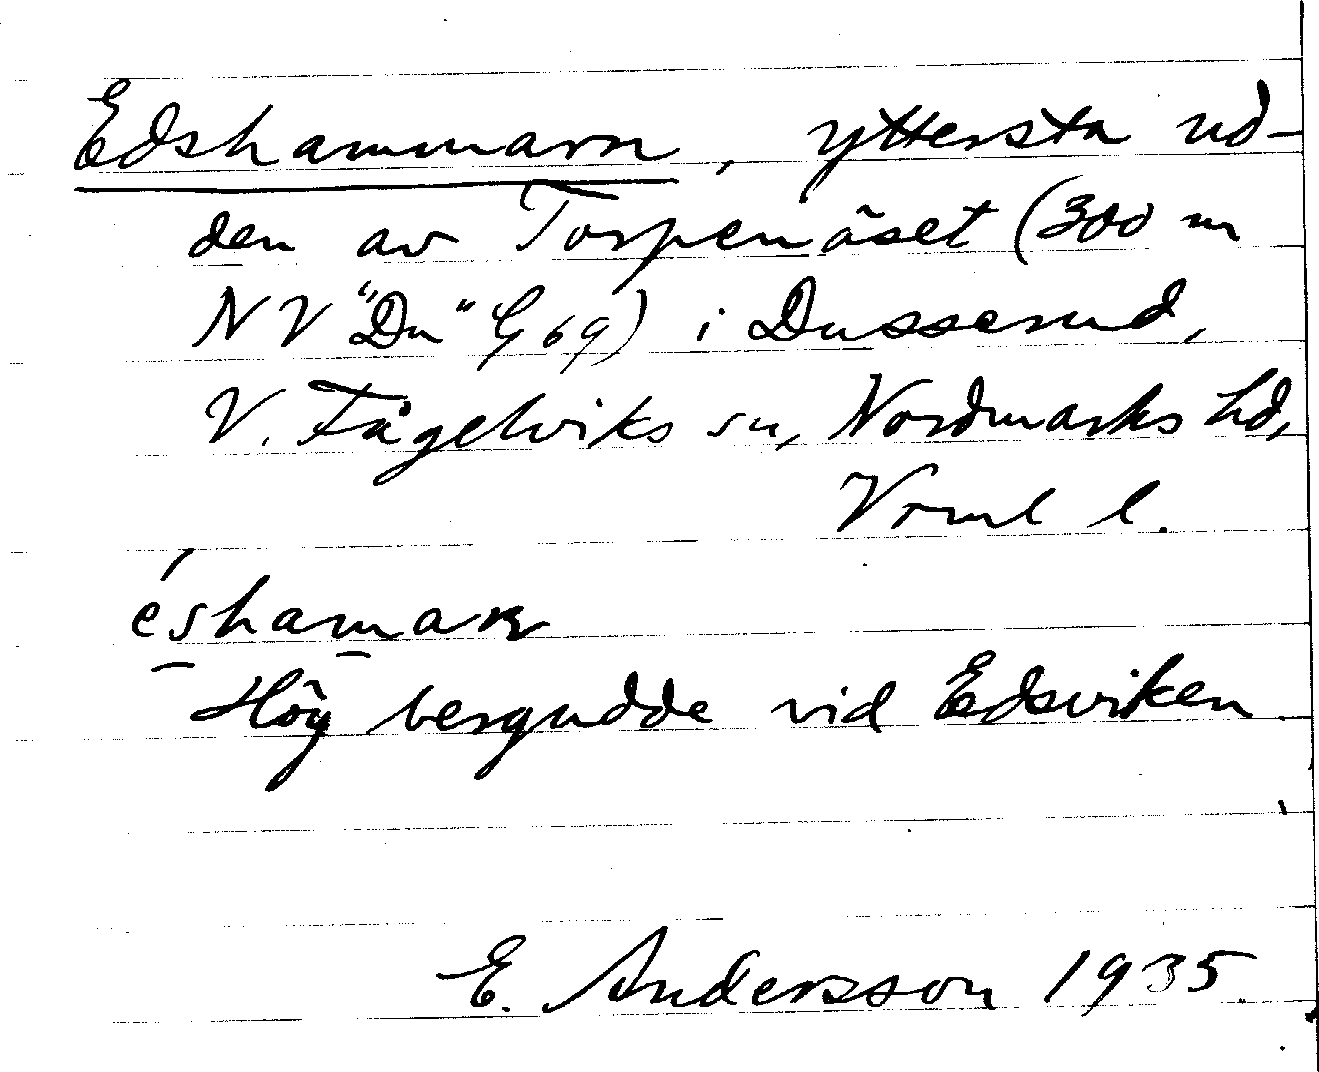 Edshammarn, yttersta ud-
den av Torpenäset (300 m
NV "Du" G69) i Dusserud,
V. Fågelviks sn, Nordmarks hd,
Vrml l.
éshamaɴ
Hög bergudde vid Edsviken
E. Andersson 1935.